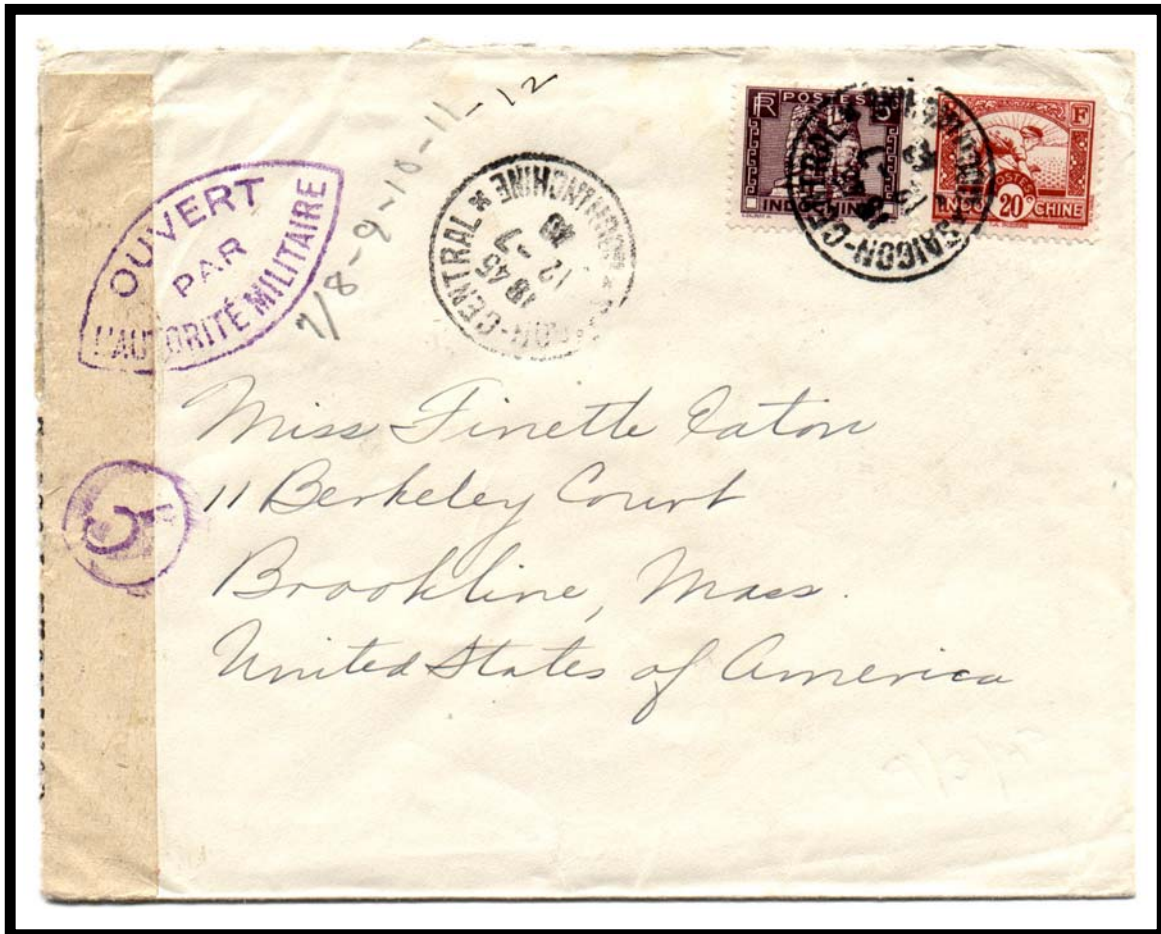 OUVERT
PAR
L'AUTORITÉ MILITAIRE
7/8-9-10-11-12
SAIGON-CENTRAL * COCHINCHINE *
18 45
12 -7
RF POSTES
INDOCHINE
SAIGON-CENTRAL
F
POSTES
INDO 20ᶜ CHINE
Miss Finette Eaton
11 Berkeley Court
Brookline, Mass.
United States of America